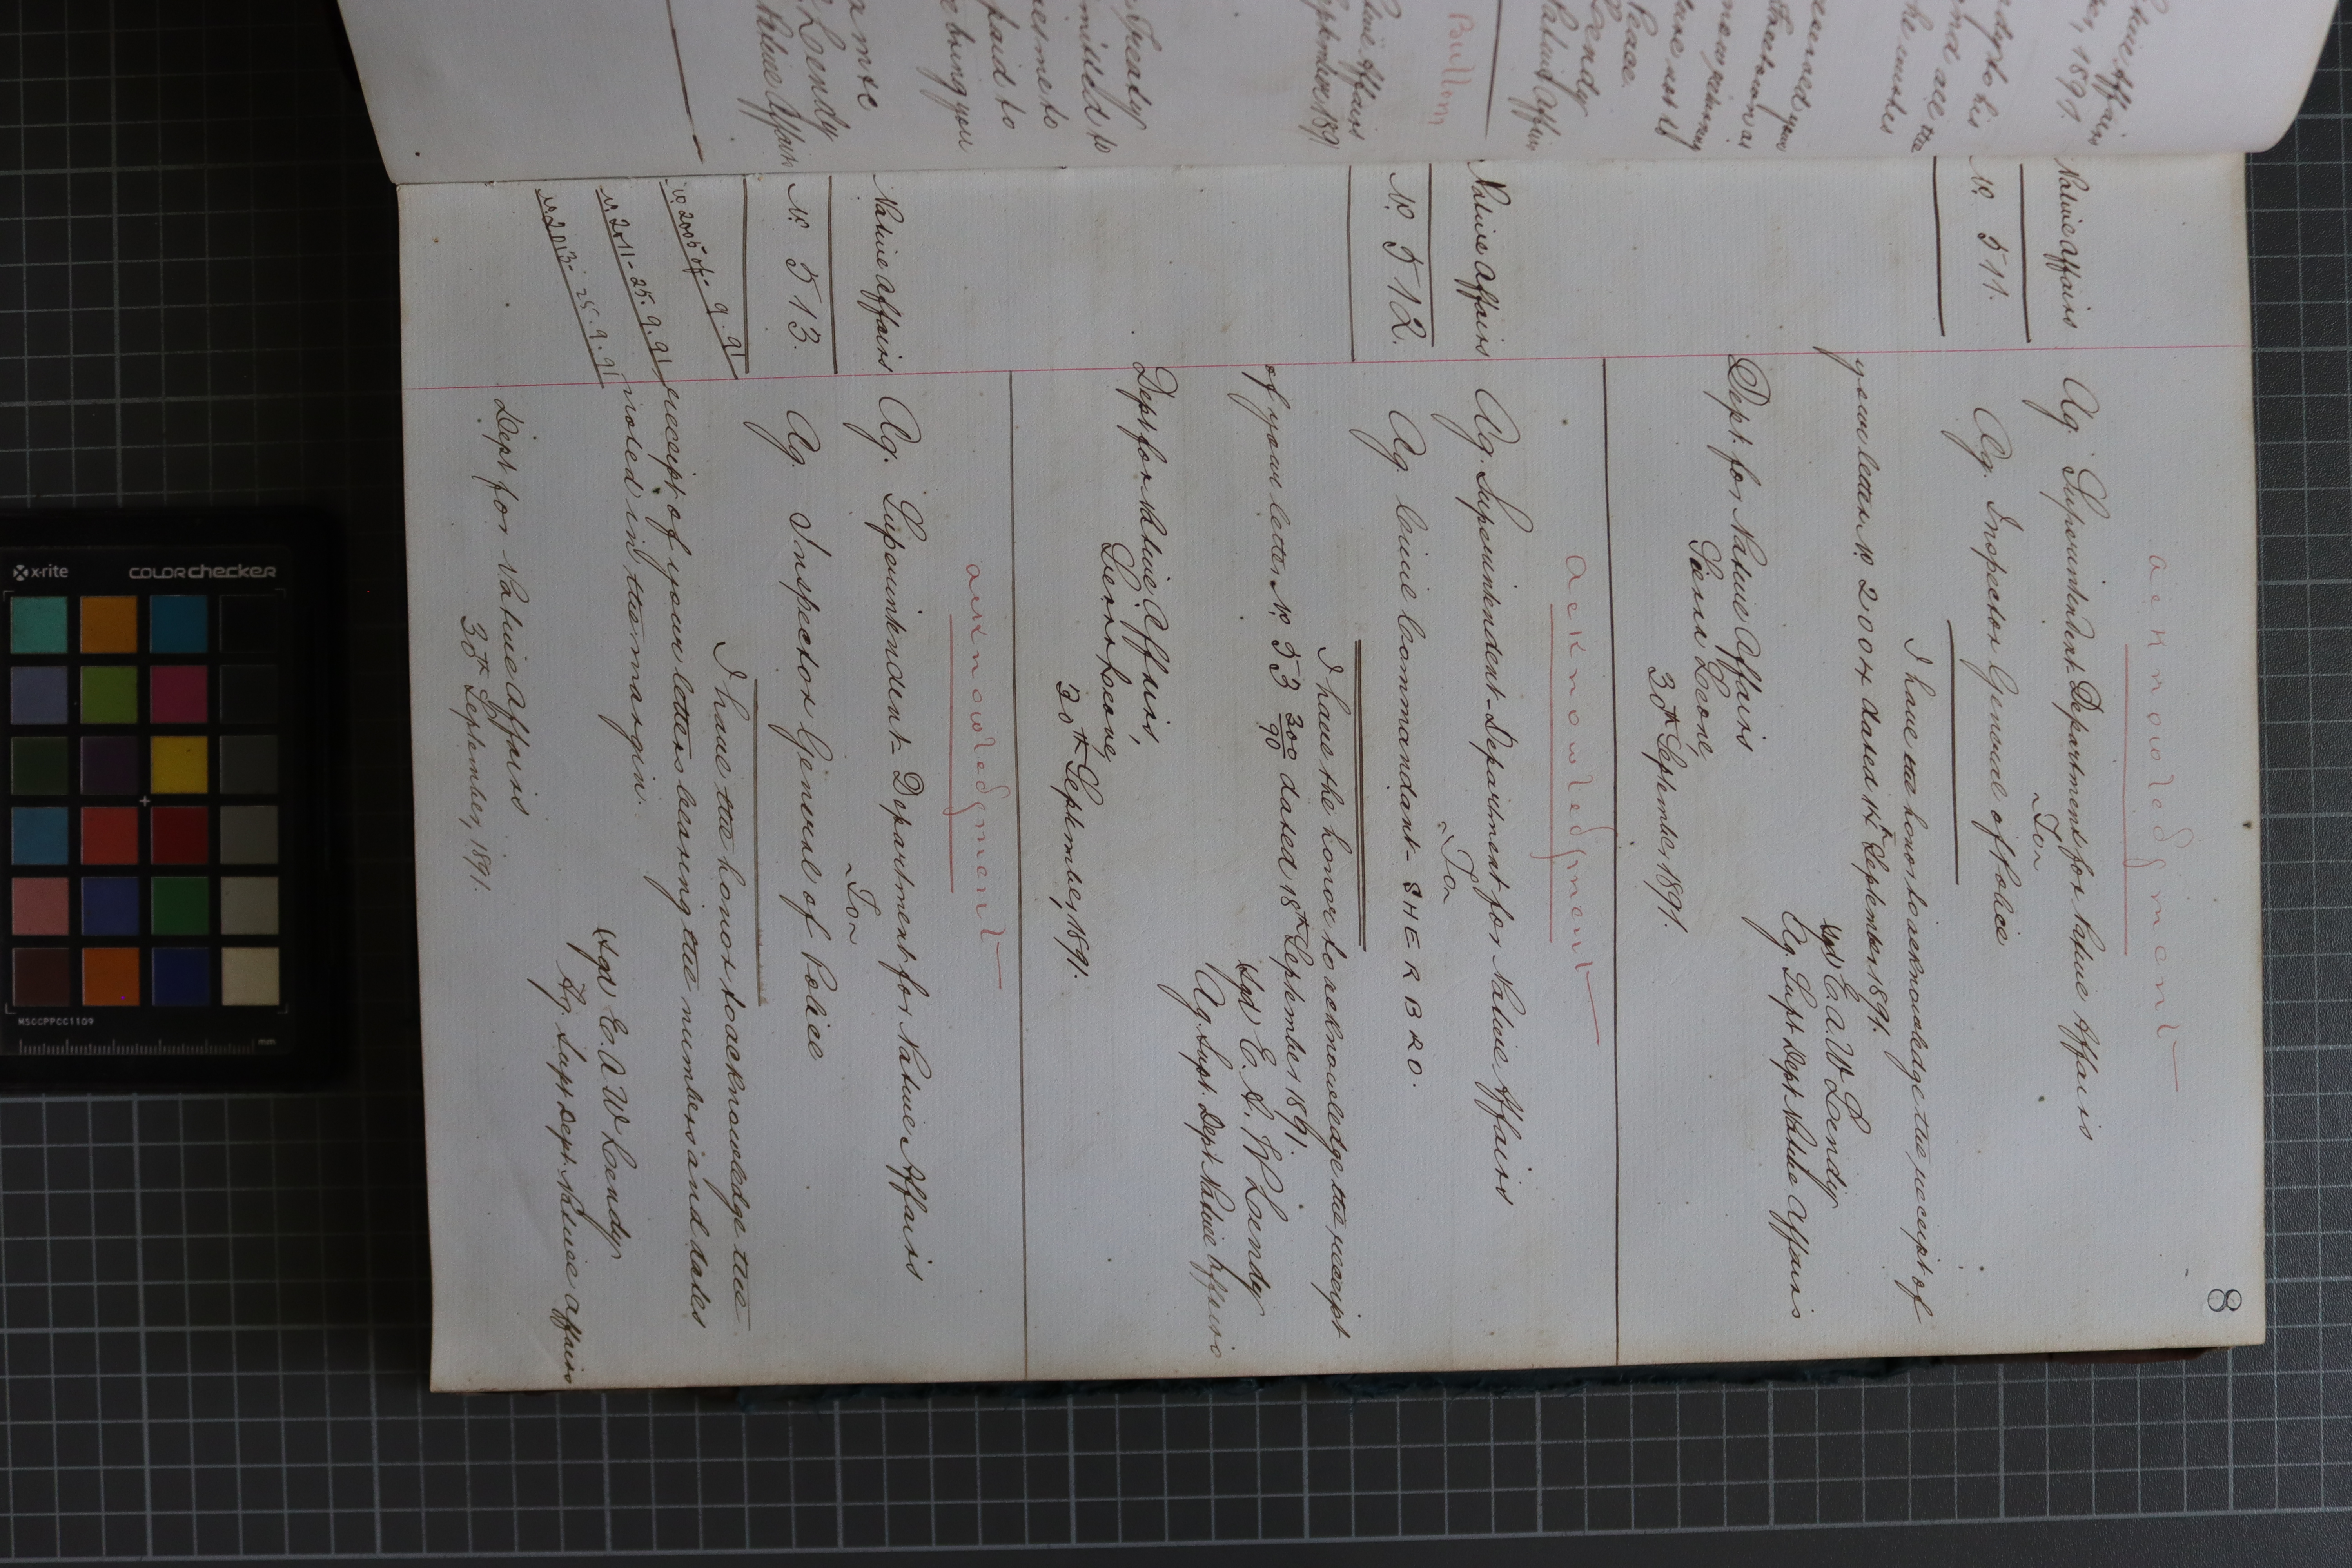 8
acknowledgment
Native Affairs
Nº 511.
Ag. Superintendent Department for Native Affairs
To
Ag. Inspector General of Police
I have the honor to acknowledge the receipt of
your letter Nº 2004 dated 15th September 1891.
Sgd E. A. W Lendy
Ag. Supt Dept Native Affairs
Dept. for Native Affairs
Sierra Leone,
30th September 1891.
acknowledgment
Native Affairs
Nº 512.
Ag. Superintendent Department for Native Affairs
To
Ag. Civil Commandant SHERBRO.
I have the honor to acknowledge the receipt
of your letter Nº 53 300/90 dated 18th September 1891
Sgd E. A. W Lendy
Ag. Supt. Dept Native Affairs
Dept for Native Affairs,
Sierra Leone,
30th September, 1891.
acknowledgment
Native Affairs
Nº 513.
Ag. Superintendent Department for Native Affairs
To
Ag. Inspector General of Police
I have the honor to acknowledge the
receipt of your letters bearing the numbers and dates
noted in the margin.
Nº 2011 - 25.9.91
Nº 2013 - 25.9.91
Sgd E. A W Lendy
Ag. Supt Dept. Native Affairs
Dept for Native Affairs
30th September, 1891.
Native Affairs
1891
and all the
Bullom
Native Affairs
September 1891
Peace
Lendy
Native Affairs
Treaty
to
paid to
bring you
Lendy
Native Affairs
x-rite
colorchecker
MSCCPPCC1109
mm